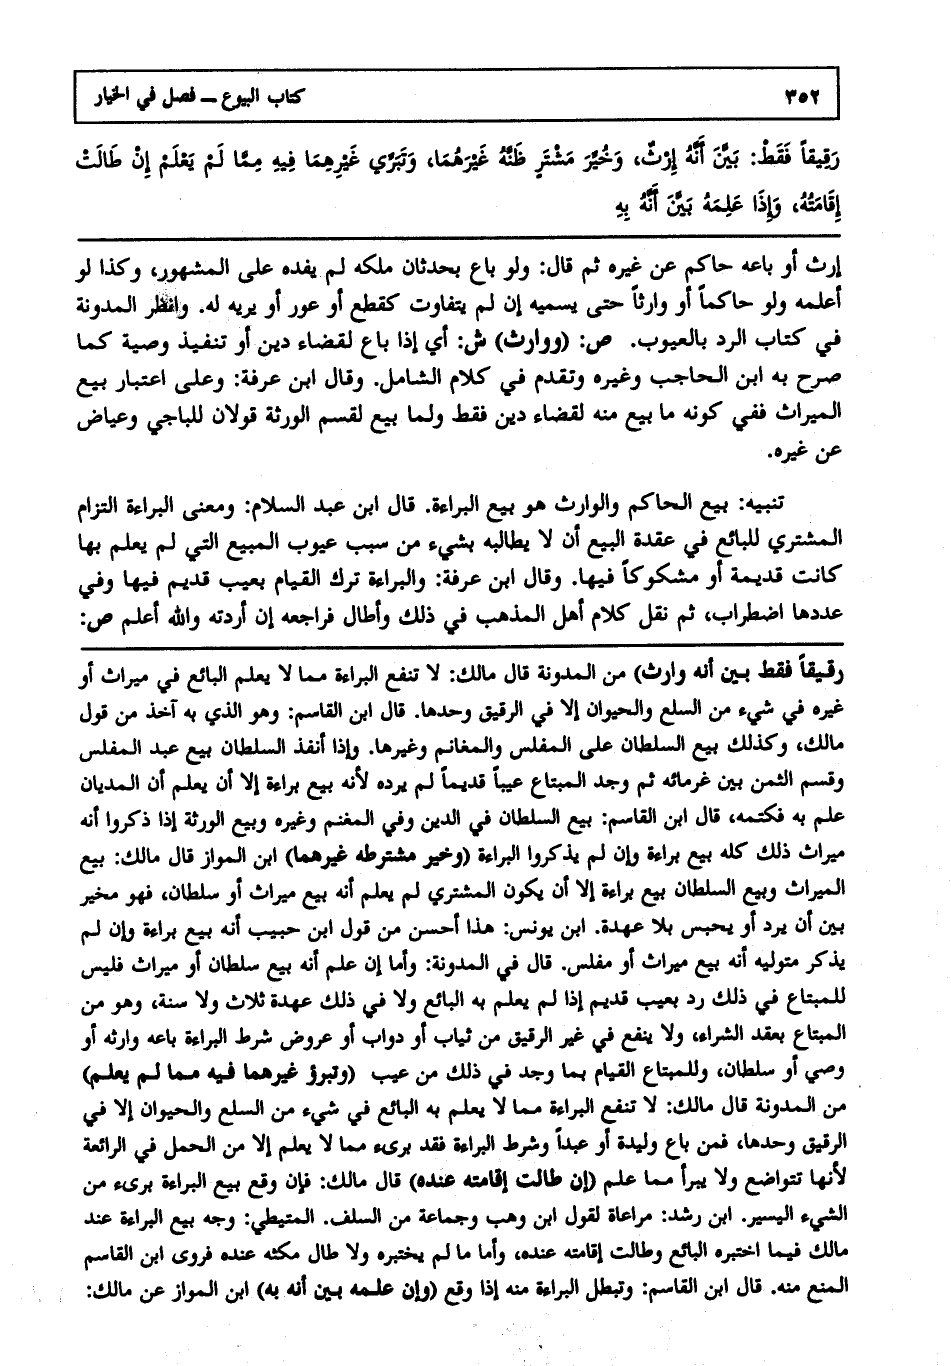 ٣٥٢ كتاب البيوع ـ فصل في الخيار
رَقِيقاً فَقَطْ: بَيَّنَ أَنَّهُ إِرْثٌ، وَخُيِّرَ مَشْتَرٍ ظَنَّهُ غَيْرَهُمَا، وَتَبَرِّي غَيْرِهِمَا فِيهِ مِمَّا لَمْ يَعْلَمْ إِنْ طَالَتْ
إِقَامَتُهُ، وَإِذَا عَلِمَهُ بَيَّنَ أَنَّهُ بِهِ
إرث أو باعه حاكم عن غيره ثم قال: ولو باع بحدثان ملكه لم يفده على المشهور، وكذا لو
أعلمه ولو حاكماً أو وارثاً حتى يسميه إن لم يتفاوت كقطع أو عور أو يريه له. وانظر المدونة
في كتاب الرد بالعيوب. ص: (ووارث) ش: أي إذا باع لقضاء دين أو تنفيذ وصية كما
صرح به ابن الحاجب وغيره وتقدم في كلام الشامل. وقال ابن عرفة: وعلى اعتبار بيع
الميراث ففي كونه ما بيع منه لقضاء دين فقط ولما بيع لقسم الورثة قولان للباجي وعياض
عن غيره.
تنبيه: بيع الحاكم والوارث هو بيع البراءة. قال ابن عبد السلام: ومعنى البراءة التزام
المشتري للبائع في عقدة البيع أن لا يطالبه بشيء من سبب عيوب المبيع التي لم يعلم بها
كانت قديمة أو مشكوكاً فيها. وقال ابن عرفة: والبراءة ترك القيام بعيب قديم فيها وفي
عددها اضطراب، ثم نقل كلام أهل المذهب في ذلك وأطال فراجعه إن أردته والله أعلم ص:
رقيقاً فقط بين أنه وارث) من المدونة قال مالك: لا تنفع البراءة مما لا يعلم البائع في ميراث أو
غيره في شيء من السلع والحيوان إلا في الرقيق وحدها. قال ابن القاسم: وهو الذي به آخذ من قول
مالك، وكذلك بيع السلطان على المفلس والمغانم وغيرها. وإذا أنفذ السلطان بيع عبد المفلس
وقسم الثمن بين غرمائه ثم وجد المبتاع عيباً قديماً لم يرده لأنه بيع براءة إلا أن يعلم أن المديان
علم به فكتمه، قال ابن القاسم: بيع السلطان في الدين وفي المغنم وغيره وبيع الورثة إذا ذكروا أنه
ميراث ذلك كله بيع براءة وإن لم يذكروا البراءة (وخير مشترطه غيرهما) ابن المواز قال مالك: بيع
الميراث وبيع السلطان بيع براءة إلا أن يكون المشتري لم يعلم أنه بيع ميراث أو سلطان، فهو مخير
بين أن يرد أو يحبس بلا عهدة. ابن يونس: هذا أحسن من قول ابن حبيب أنه بيع براءة وإن لم
يذكر متوليه أنه بيع ميراث أو مفلس. قال في المدونة: وأما إن علم أنه بيع سلطان أو ميراث فليس
للمبتاع في ذلك رد بعيب قديم إذا لم يعلم به البائع ولا في ذلك عهدة ثلاث ولا سنة، وهو من
المبتاع بعقد الشراء، ولا ينفع في غير الرقيق من ثياب أو دواب أو عروض شرط البراءة باعه وارثه أو
وصي أو سلطان، وللمبتاع القيام بما وجد في ذلك من عيب (وتبرؤ غيرهما فيه مما لم يعلم)
من المدونة قال مالك: لا تنفع البراءة مما لا يعلم به البائع في شيء من السلع والحيوان إلا في
الرقيق وحدها، فمن باع وليدة أو عبداً وشرط البراءة فقد برىء مما لا يعلم إلا من الحمل في الرائعة
لأنها تتواضع ولا يبرأ مما علم (إن طالت إقامته عنده) قال مالك: فإن وقع بيع البراءة برىء من
الشيء اليسير. ابن رشد: مراعاة لقول ابن وهب وجماعة من السلف. المتيطي: وجه بيع البراءة عند
مالك فيما اختبره البائع وطالت إقامته عنده، وأما ما لم يختبره ولا طال مكثه عنده فروى ابن القاسم
المنع منه. قال ابن القاسم: وتبطل البراءة منه إذا وقع (وإن علمه بين أنه به) ابن المواز عن مالك: